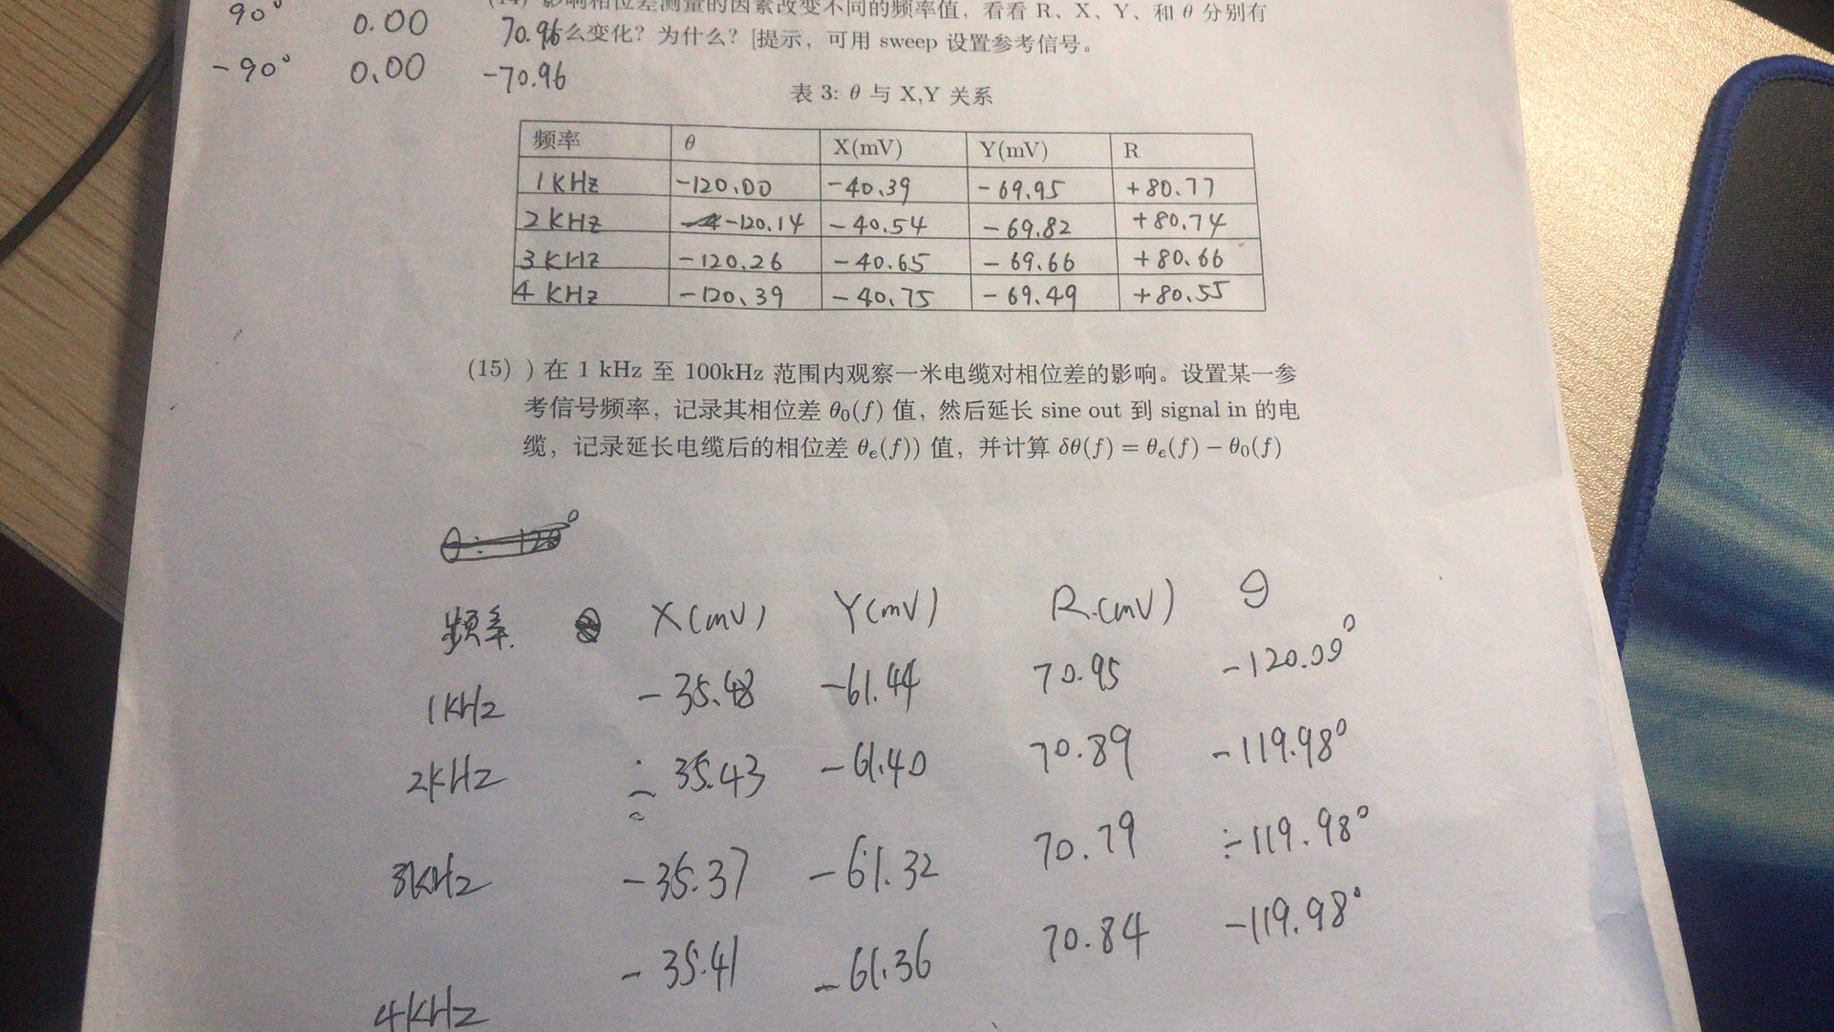 90° 0.00 70.96
-90° 0.00 -70.96
(14) 影响相位差测量的因素改变不同的频率值，看看 R、X、Y、和 θ 分别有
么变化？为什么？[提示，可用 sweep 设置参考信号。
表 3: θ 与 X,Y 关系
频率 θ X(mV) Y(mV) R
1KHz -120.00 -40.39 -69.95 +80.77
2KHz -120.14 -40.54 -69.82 +80.74
3KHz -120.26 -40.65 -69.66 +80.66
4 KHz -120.39 -40.75 -69.49 +80.55
(15) ) 在 1 kHz 至 100kHz 范围内观察一米电缆对相位差的影响。设置某一参
考信号频率，记录其相位差 θ₀(f) 值，然后延长 sine out 到 signal in 的电
缆，记录延长电缆后的相位差 θₑ(f)) 值，并计算 δθ(f) = θₑ(f) − θ₀(f)
频率 X(mV) Y(mV) R(mV) θ
1KHz -35.48 -61.44 70.95 -120.09°
2KHz -35.43 -61.40 70.89 -119.98°
3KHz -35.37 -61.32 70.79 -119.98°
4KHz -35.41 -61.36 70.84 -119.98°